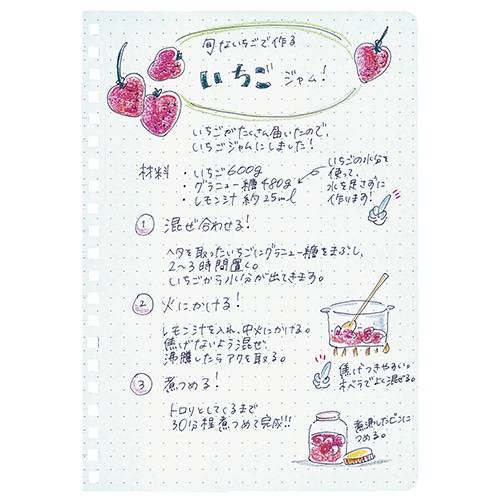 旬ないちごで作る
いちごジャム!
いちごがたくさん届いたので、
いちごジャムにしました!
材料
・いちご600g
・グラニュー糖480g
・レモン汁 約25ml
いちごの水分を
使って、
水を足さずに
作ります!
1 混ぜ合わせる!
ヘタを取ったいちごにグラニュー糖をまぶし、
2〜3時間置く。
いちごから水分が出てきます。
2 火にかける!
レモン汁を入れ、中火にかける。
焦げないよう混ぜ、
沸騰したらアクを取る。
焦げつきやすい。
木ベラでよく混ぜる。
3 煮つめる!
トロリとしてくるまで
30分程煮つめて完成!!
煮沸したビンに
つめる。